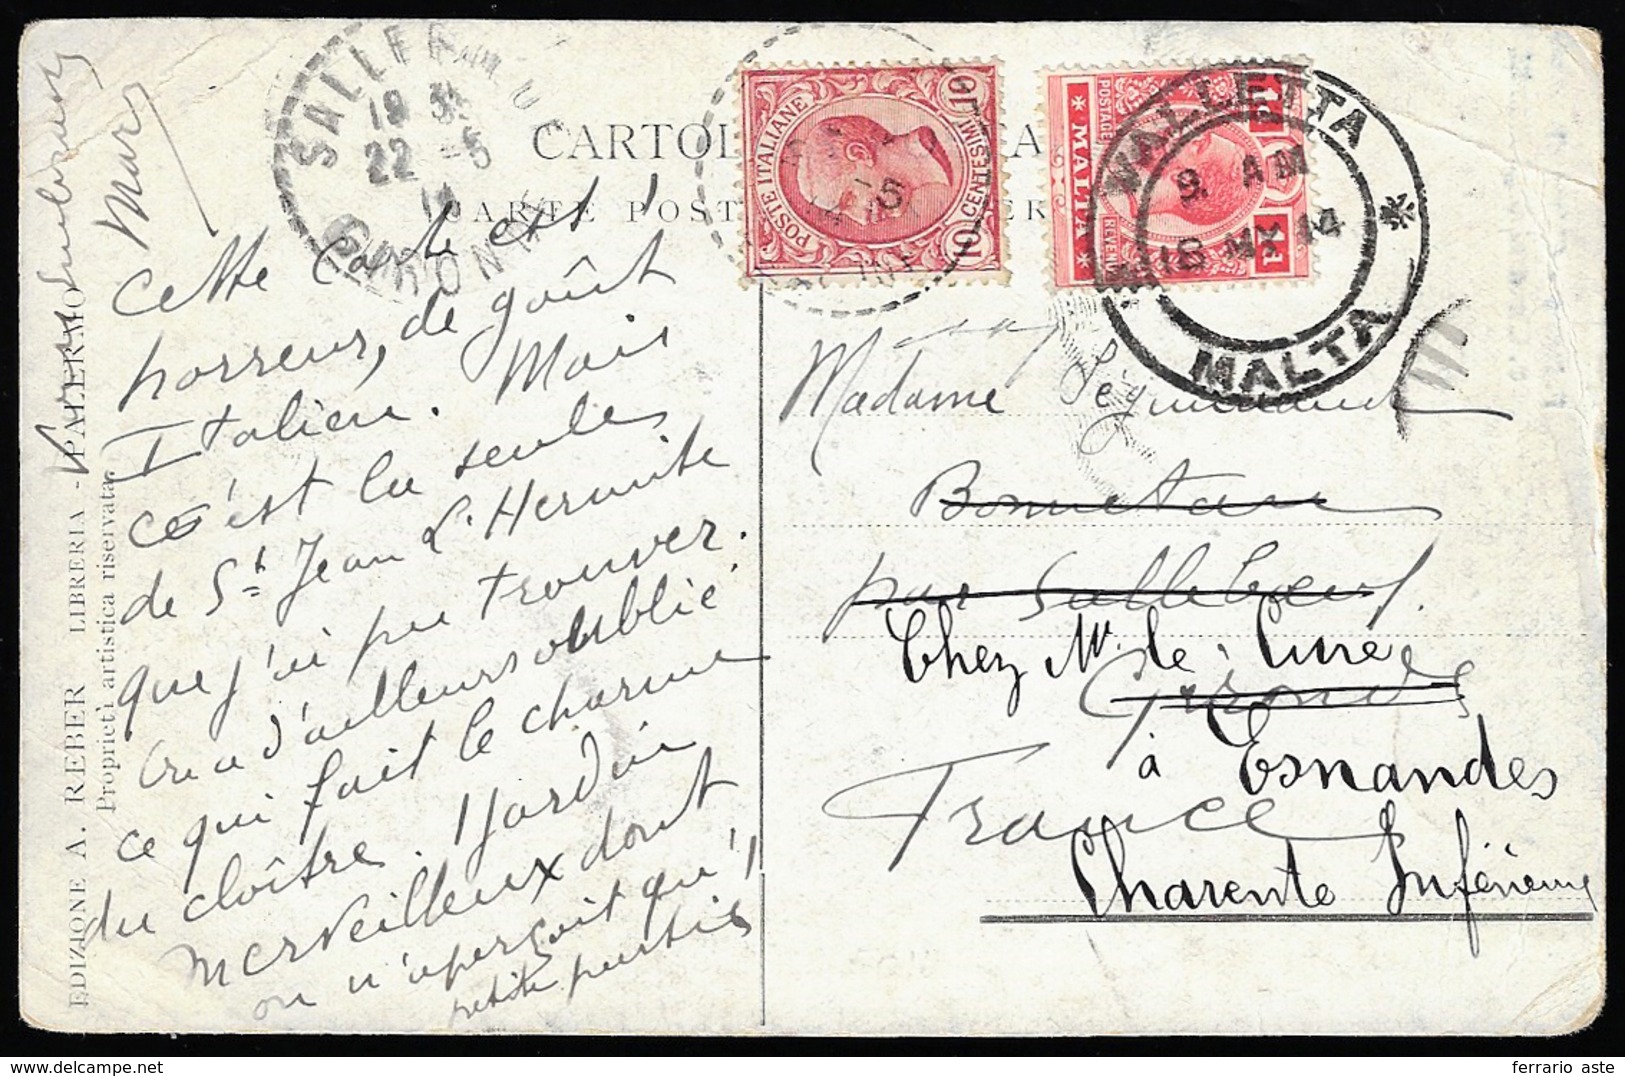 SALLEBŒUF
19 35
22 -5
14
GIRONDE
CARTOL
CARTE POST
POSTE ITALIANE
10 CENTESIMI 10
1d 1d
POSTAGE
MALTA
REVENUE
VALLETTA
9. AM
16 MY 14
MALTA
Mars
Cette Carte est l'
horreur, de goût
Italien. Mais
c'est la seule
de St Jean L'Hermite
que j'ai pu trouver.
On a d'ailleurs oublié
ce qui fait le charme
du cloître. 1 Jardin
merveilleux dont
on n'aperçoit qu'1
petite partie
EDIZIONE A. REBER LIBRERIA - PALERMO
Proprietà artistica riservata
Madame Séguinaud
Bonnetan
par Sallebœuf.
Gironde
France
Chez Mr. le Curé
à Esnandes
Charente Inférieure
ferrario aste